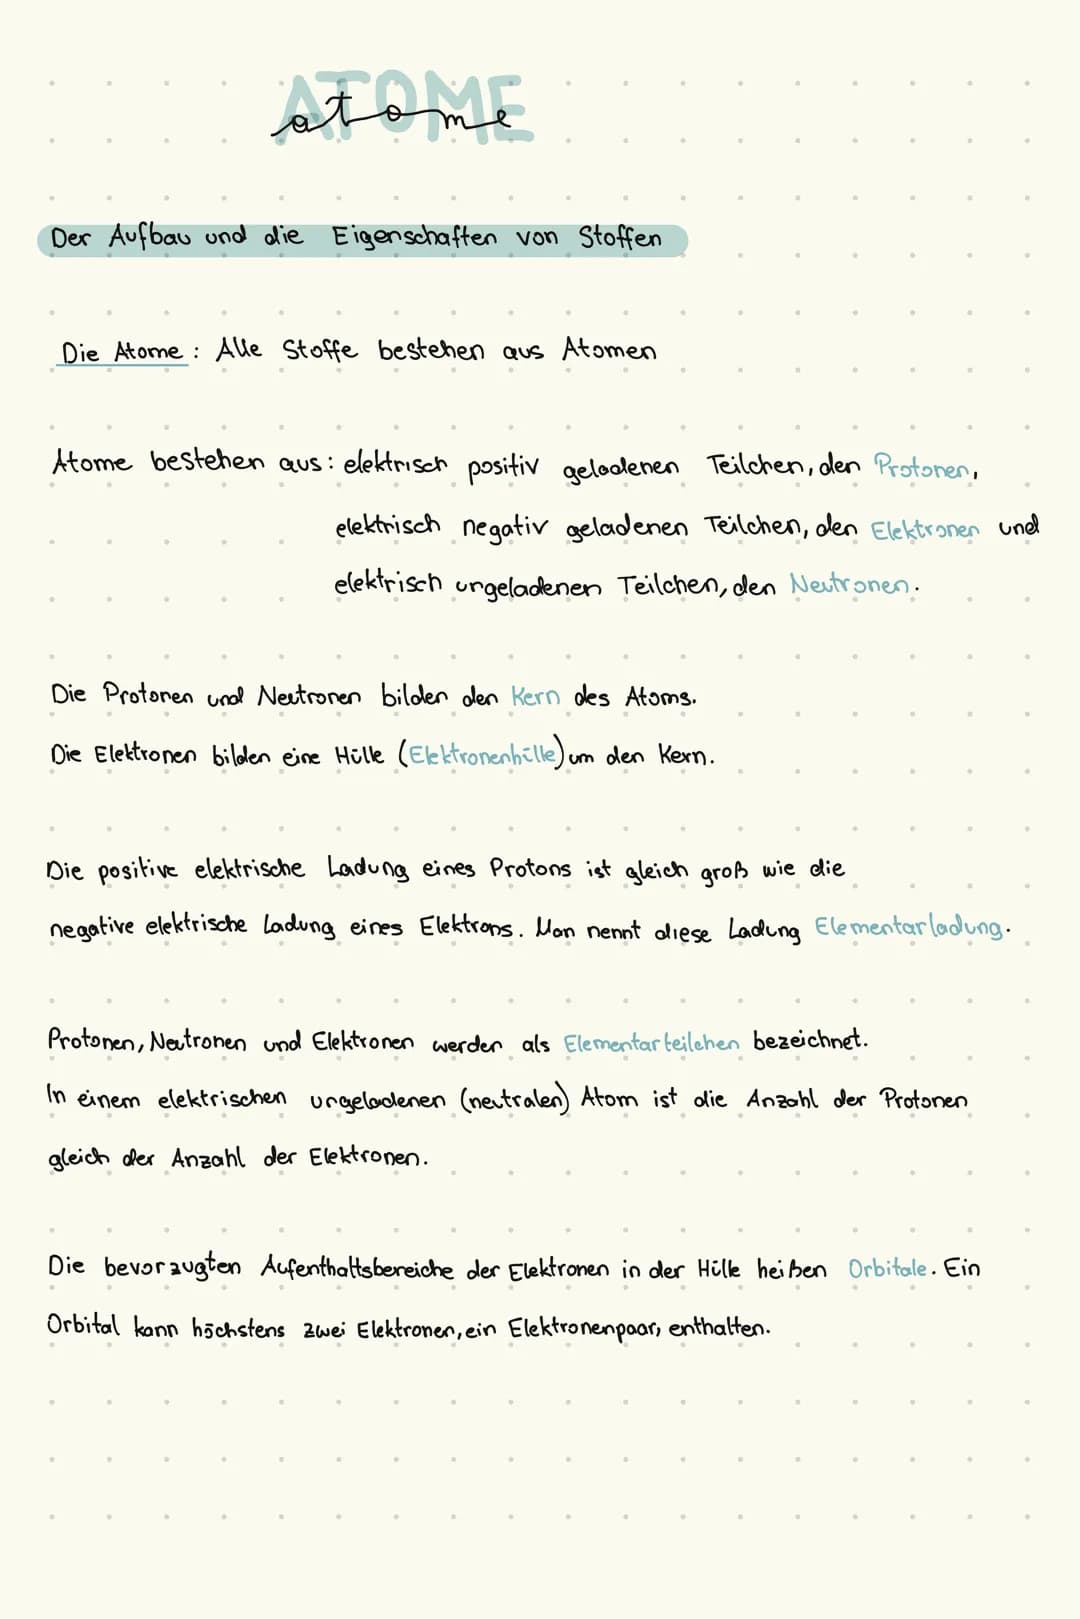 ATOME
atome
Der Aufbau und die Eigenschaften von Stoffen
Die Atome : Alle Stoffe bestehen aus Atomen
Atome bestehen aus: elektrisch positiv geladenen Teilchen, den Protonen,
elektrisch negativ geladenen Teilchen, den Elektronen und
elektrisch ungeladenen Teilchen, den Neutronen.
Die Protonen und Neutronen bilden den Kern des Atoms.
Die Elektronen bilden eine Hülle (Elektronenhülle) um den Kern.
Die positive elektrische Ladung eines Protons ist gleich groß wie die
negative elektrische Ladung eines Elektrons. Man nennt diese Ladung Elementarladung.
Protonen, Neutronen und Elektronen werden als Elementarteilchen bezeichnet.
In einem elektrischen ungeladenen (neutralen) Atom ist die Anzahl der Protonen
gleich der Anzahl der Elektronen.
Die bevorzugten Aufenthaltsbereiche der Elektronen in der Hülle heißen Orbitale. Ein
Orbital kann höchstens zwei Elektronen, ein Elektronenpaar, enthalten.